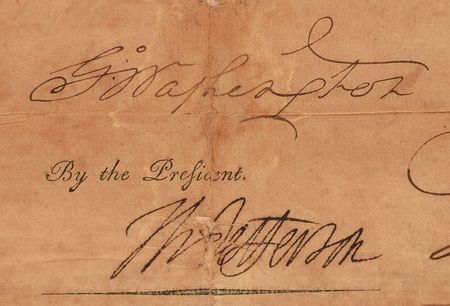 G:Washington
By the Preſident.
Th: Jefferson